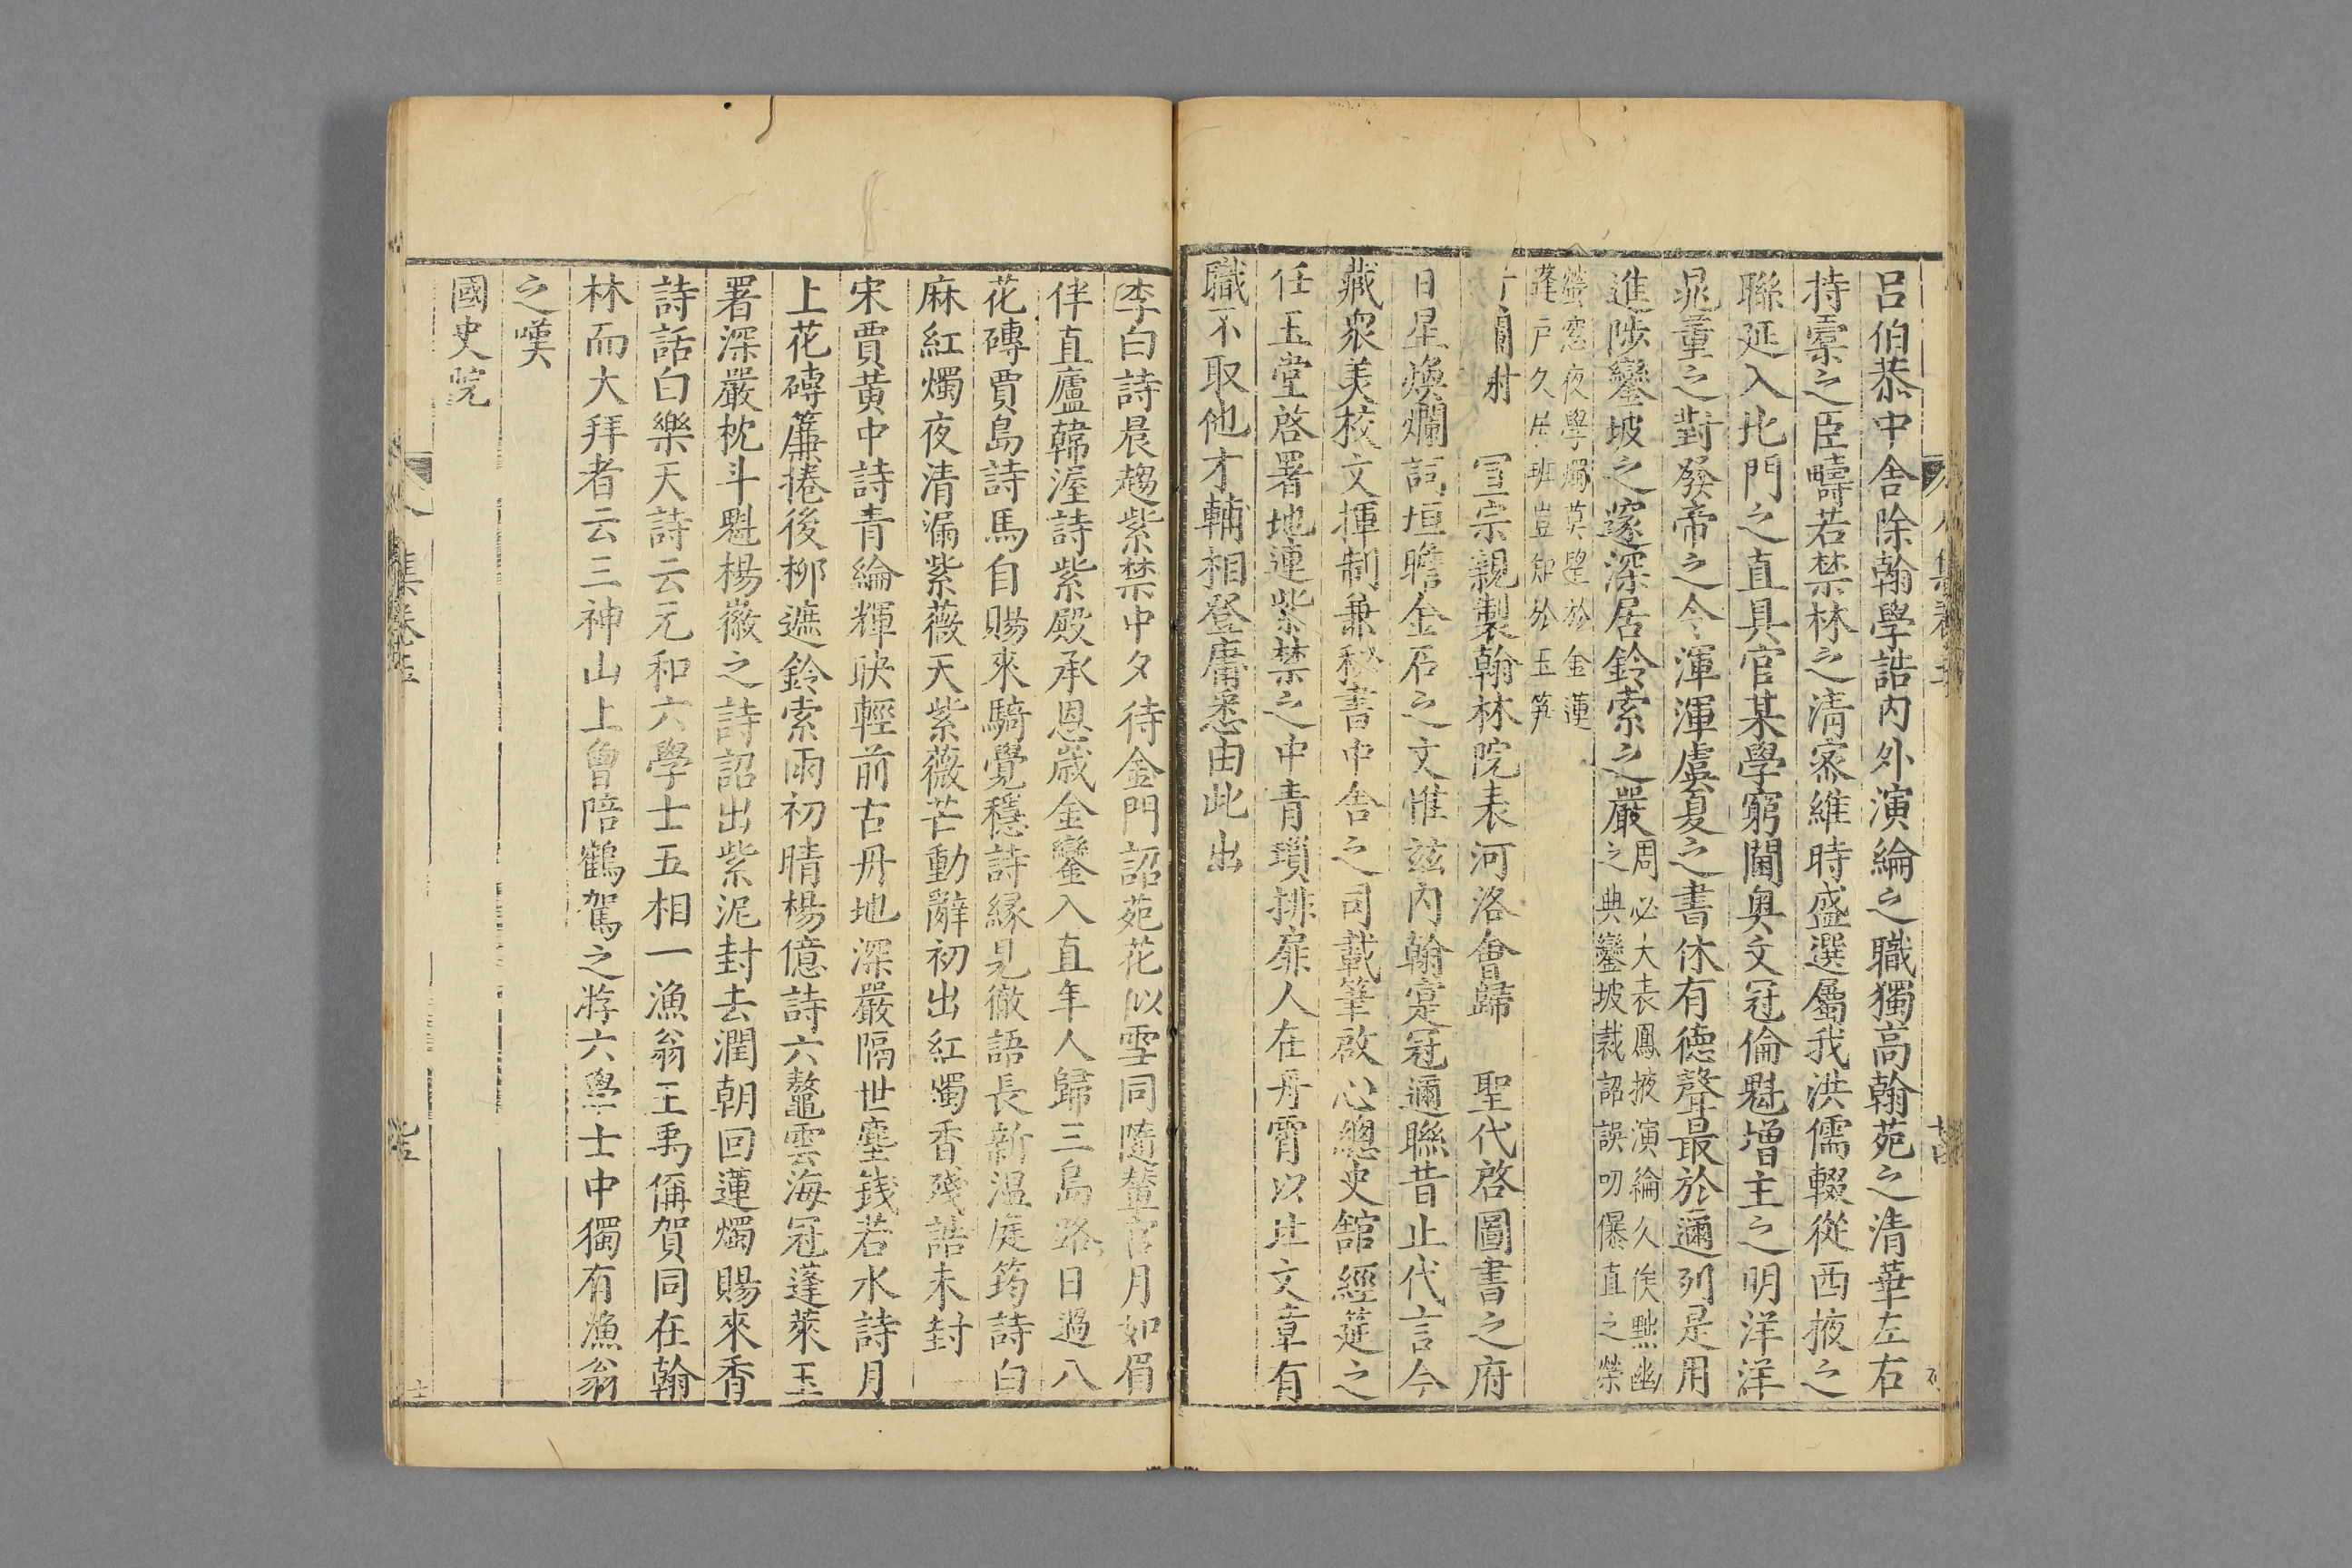 呂伯恭中舍除翰學誥内外演綸之職獨高翰苑之清華左右
持橐之臣疇若禁林之清宻維時盛選屬我洪儒輟從西掖之
聯延入北門之直具官某學窮閫奥文冠倫魁增主之明洋洋
晁董之對發帝之令渾渾虞夏之書休有德聲最於邇列是用
進陟鑾坡之邃深居鈴索之嚴
周必大表鳳掖演綸久俟黜幽
之典鑾坡裁詔誤叨儤直之榮
螢窓夜學燭莫望於金蓮
蓬戶久居班豈知於玉笋
宣宗親製翰林院表河洛會歸　聖代啓圖書之府
日星煥爛詞垣瞻金石之文惟兹内翰寔冠邇聯昔止代言今
藏衆美校文揮制兼秘書中舍之司載筆啟心總史舘經筵之
任玉堂啓署地連紫禁之中青瑣排扉人在丹霄以上文章有
職不取他才輔相登庸悉由此出
李白詩晨趨紫禁中夕待金門詔苑花似雪同隨輦宮月如眉
伴直廬韓渥詩紫殿承恩歲金鑾入直年人歸三島路日過八
花磚賈島詩馬自賜來騎覺穩詩縁見徹語長新温庭筠詩白
麻紅燭夜清漏紫薇天紫薇芒動辭初出紅燭香殘誥未封
宋賈黃中詩青綸輝映輕前古丹地深嚴隔世塵錢若水詩月
上花磚簾捲後柳遮鈴索雨初晴楊億詩六鼇雲海冠蓬萊玉
署深嚴枕斗魁楊徽之詩詔出紫泥封去潤朝回蓮燭賜來香
詩話白樂天詩云元和六學士五相一漁翁王禹偁賀同在翰
林而大拜者云三神山上曾陪鶴駕之游六學士中獨有漁翁
之嘆
國史院